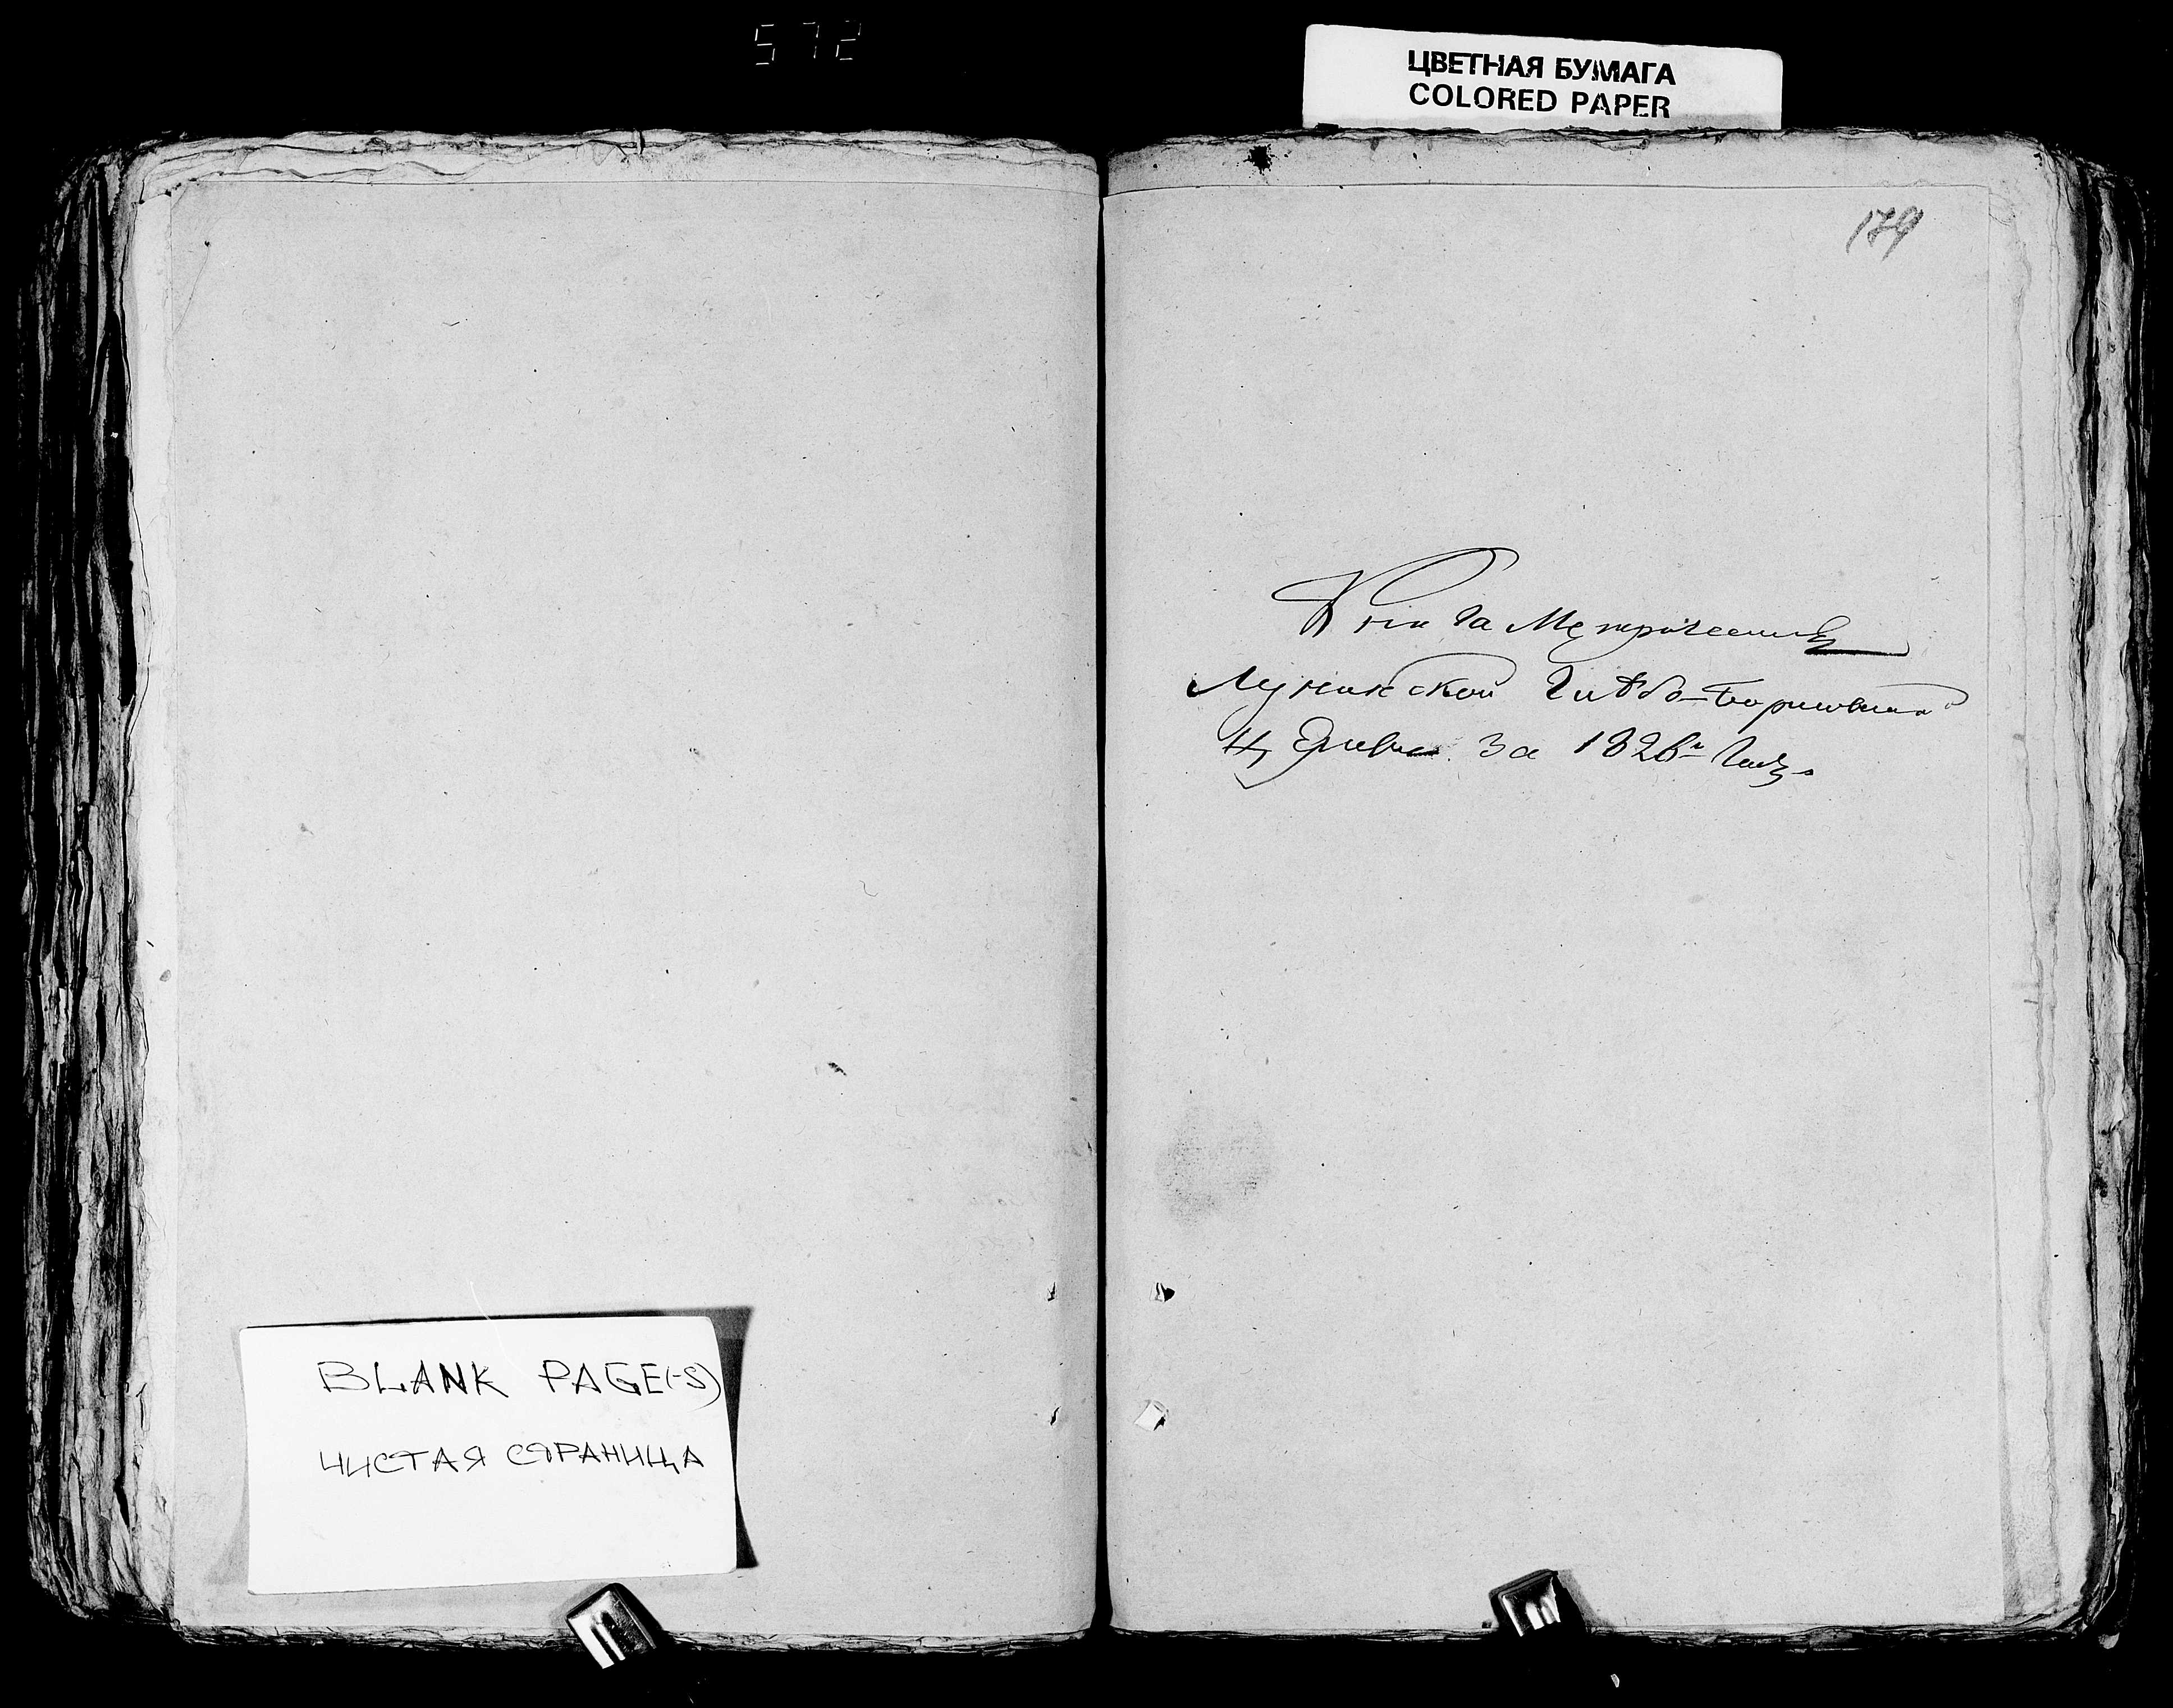 572
ЦВЕТНАЯ БУМАГА
COLORED PAPER
179
Книга Метрическая
Лунинской Глѣбо-Борисовской
Церкви за 1826й Годъ.
BLANK PAGE(-S)
ЧИСТАЯ СТРАНИЦА